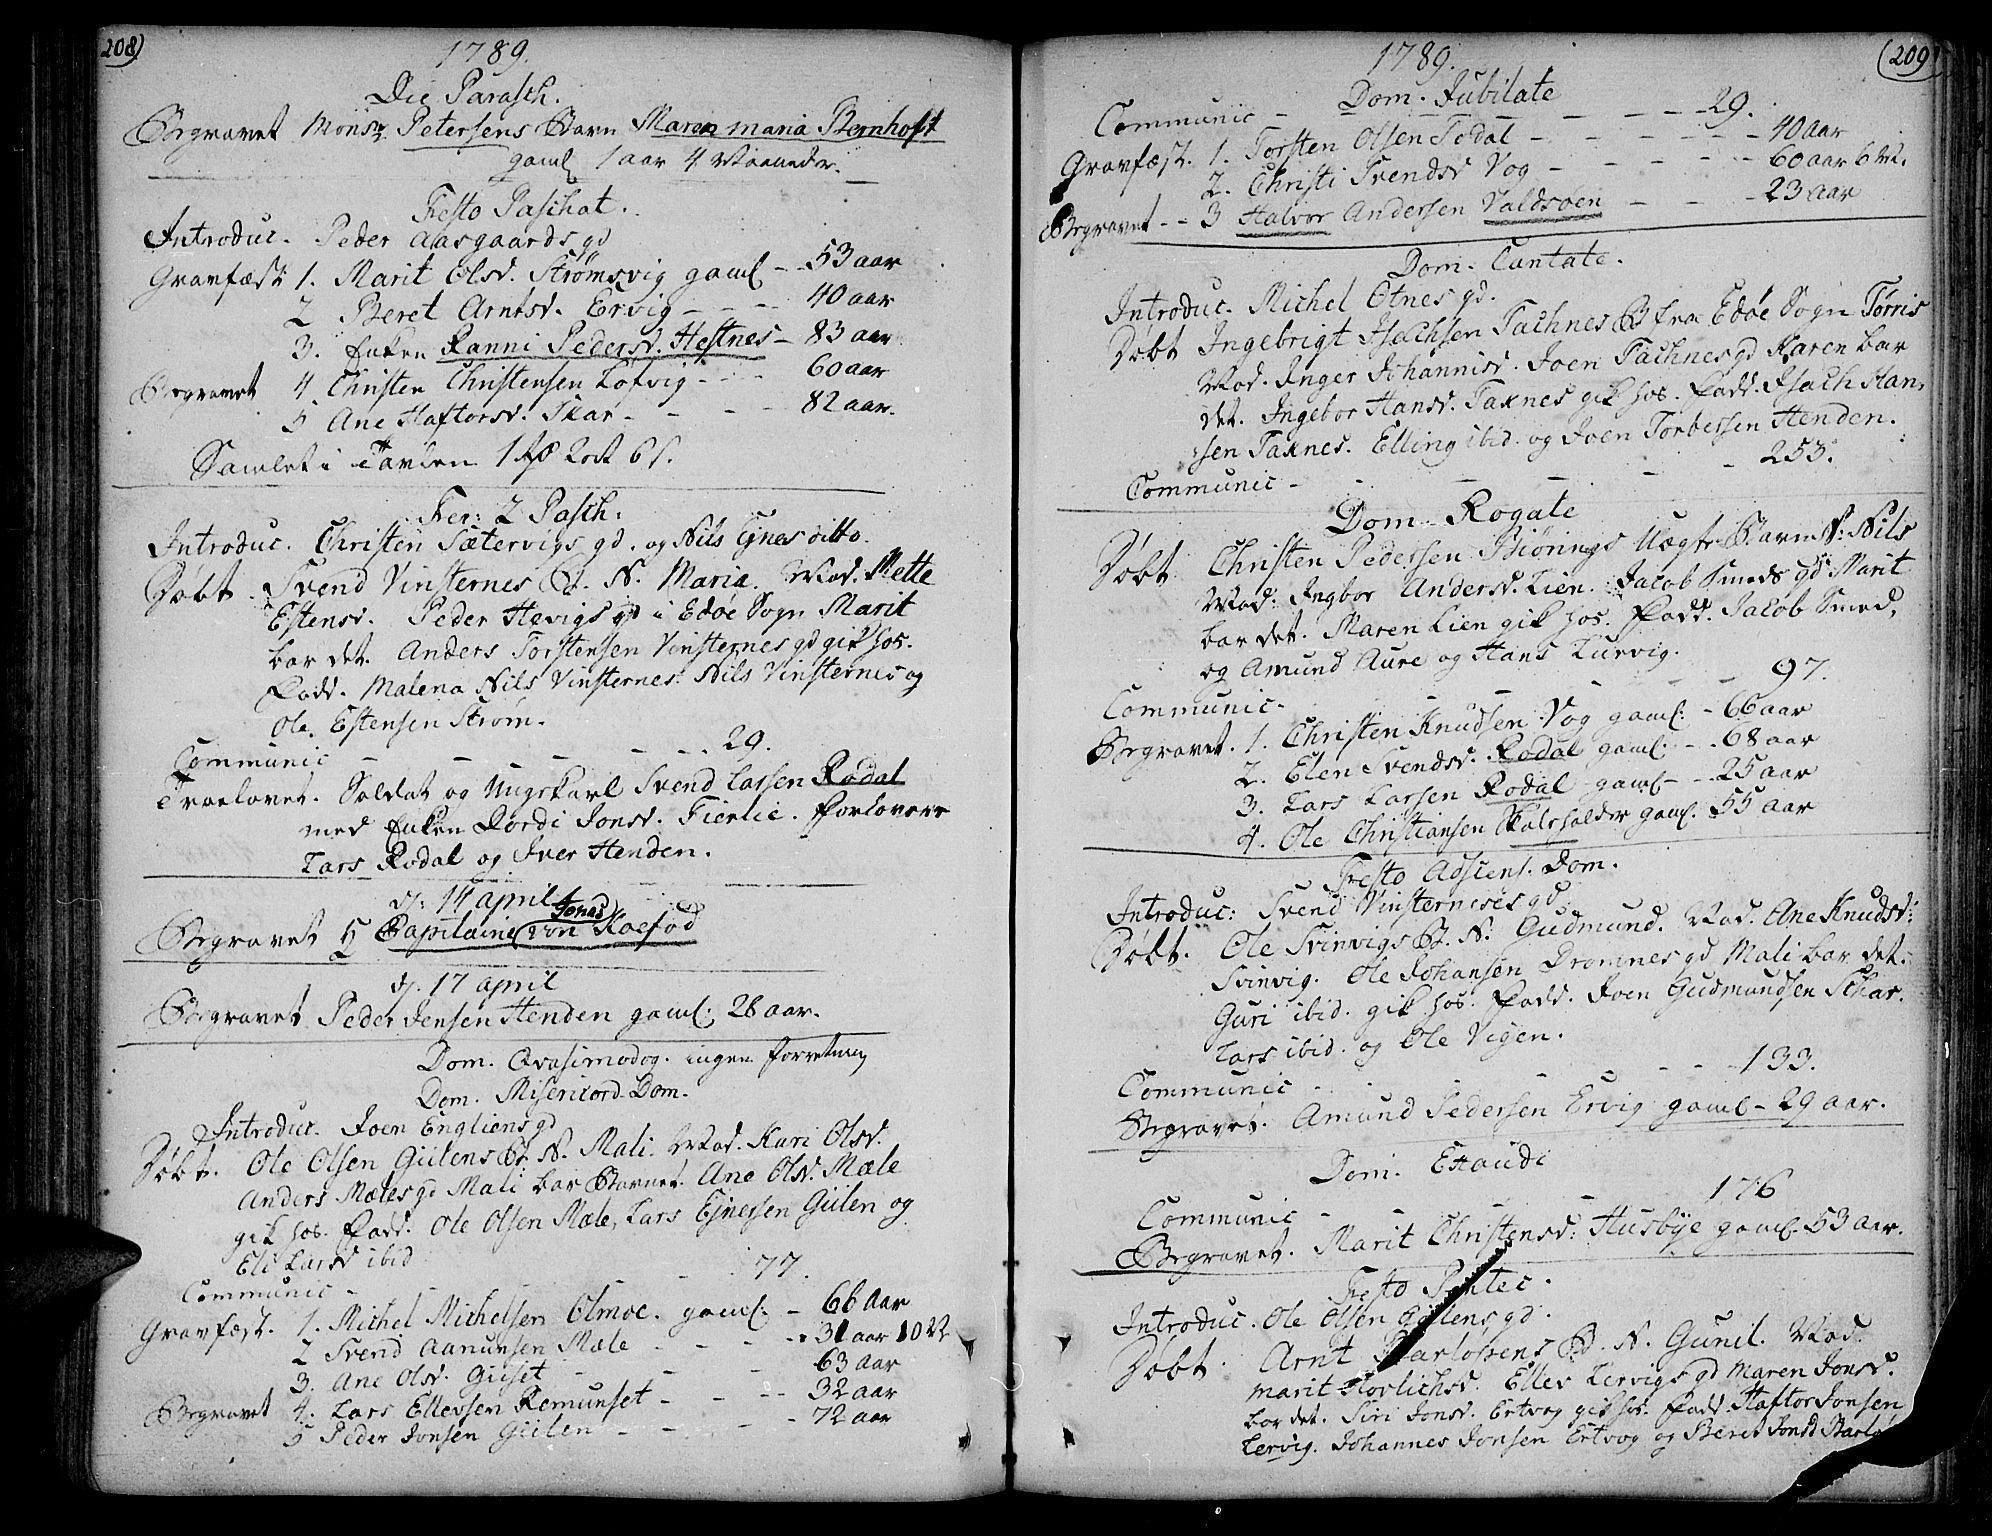 208)
1789.
Die Parasch.
Begravet Monsr. Petersens Barn Maren Maria Bernhoft
gaml 1 aar 4 Maaneder.
Festo Paschat.
Introduc. Peder Aasgaards gd
Gravfæst: 1. Marit Olsd. Strømsvig gaml - - 53 aar
2 Beret Arntsd. Ervig - - - 40 aar
3. Enken Ranni Pedersd. Hestnes - 83 aar
Begravet 4. Christen Christensen Løfvig - - - 60 aar
5 Ane Haftorsd. Skar - - - - 82 aar.
Samlet i Tavlen 1 rd 2 ort 6 s.
Fer: 2 Pasch:
Introduc. Christen Sætervigs gd. og Nils Ejnes ditto.
Døbt. Svend Vinsternes B. N. Maria. Mod. Mette
Estensd. Peder Hevigs gd i Edøe Sogn Marit
bar det. Anders Torstensen Vinsternes gd gik hos.
Fadd. Malena Nils Vinsternes. Nils Vinsternes og
Ole Estensen Strøm.
Communic - - - - - - 29.
Troelovet. Soldat og Ungkarl Svend Larsen Rodal
med Enken Dordi Jonsd. Fierlie. Forlovere
Lars Rodal og Iver Henden.
d: 14 april
Jonas
Begravet H Capitaine von Koefod
d. 17 april
Begravet Peder Jensen Henden gaml: 28 aar.
Dom. Qvasimodog. ingen forretning
Dom. Misericord. Dom.
Introduc. Joen Engliens gd
Døbt. Ole Olsen Giilens B. N. Mali. Mod. Kari Olsd.
Anders Mæles gd Mali bar Barnet. Ane Olsd. Mæle
gik hos. Fadd. Ole Olsen Mæle, Lars Ejnersen Giilen og
Eli Larsd ibid
Communic - - - 77.
Gravfæst. 1. Michel Michelsen Olmoe. gaml: - 66 aar
2 Svend Aanunsen Mæle - - - 31 aar 10 U
3. Ane Olsd. Giiset - - - - 63 aar
Begravet 4. Lars Ellevsen Remunset - - - - 32 aar
5 Peder Jonsen Giilen - - - - 72 aar
(209)
1789.
Dom. Jubilate
Communic - - - - - 29.
Gravfæst. 1. Torsten Olsen Todal - - - - - 40 aar
2. Christi Svendsd Vog - - - - - 60 aar 6 M.
Begravet - - 3 Halvor Andersen Valdsøen - - - 23 aar
Dom. Cantate.
Introduc. Michel Otnes gd.
Døbt Ingebrigt Isachsen Tachnes B fra Edøe Sogn Tørris
Mod. Inger Johannisd. Joen Tachnes gd Karen bar
det. Ingebor Hansd. Taknes gik hos. Fadd. Isach Han-
sen Taknes. Elling ibid. og Joen Torbersen Henden.
Communic - - - - - 253.
Dom. Rogate
Døbt Christen Pedersen Biørings Uægte Barn N: Nils
Mod: Ingbor Andersd. Lien. Jacob Smeds gd Marit
bar det. Maren Lien gik hos. Fadd. Jacob Smed,
og Amund Aure og Hans Lurvig.
Communic. - - - - 97.
Begravet. 1. Christen Knudsen Vog gaml: - 66 aar
2. Elen Svendsd. Rodal gaml. - - 68 aar
3. Lars Larsen Rodal gaml - - 25 aar
4. Ole Christiansen gaml. 55 aar
Festo Adscens. Dom.
Introduc: Svend Vinsterneses gd
Døbt. Ole Svinvigs B. N: Gudmund. Mod. Ane Knudsd:
Svinvig. Ole Johansen Dromnes gd Mali bar det.
Guri ibid. gik hos. Fadd. Joen Gudmundsen Schar.
Lars ibid. og Ole Vigen.
Communic - - - - - 133.
Begravet. Amund Pedersen Ervig gaml - 29 aar.
Dom. Exaudi
Communic - - - - 176
Begravet. Marit Christensd: Husbye gaml. 53 aar.
Festo Pentec.
Introduc. Ole Olsen Giilens gd.
Døbt. Arnt B. N. Gunil. Mod.
Marit Ellev Lervigs gd Maren Jonsd.
bar det. Siri Jonsd. Ertvog gik hos. Fadd. Haftor Jonsen
Lervig. Johannes Jonsen Ertvog og Beret Jonsd